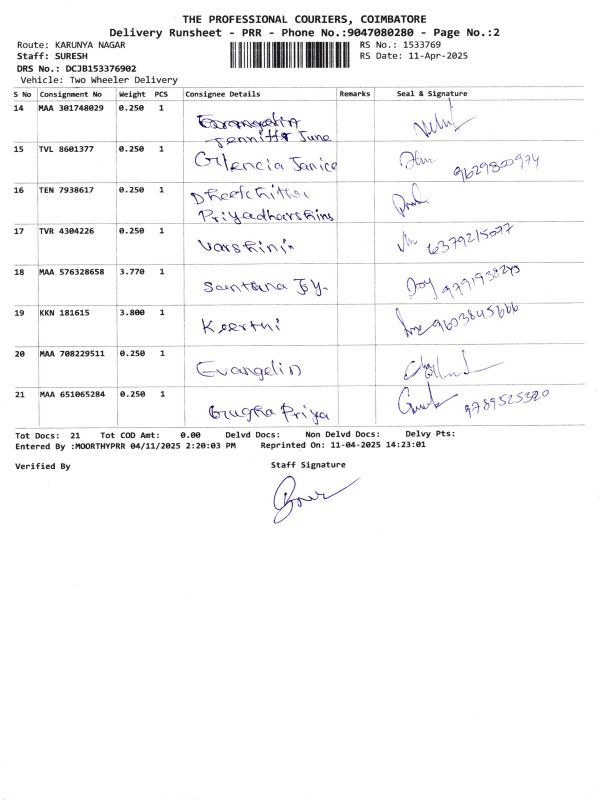 THE PROFESSIONAL COURIERS, COIMBATORE
Delivery Runsheet - PRR - Phone No.:9047080280 - Page No.:2
Route: KARUNYA NAGAR RS No.: 1533769
Staff: SURESH RS Date: 11-Apr-2025
DRS No.: DCJB153376902
Vehicle: Two Wheeler Delivery
S No Consignment No Weight PCS Consignee Details Remarks Seal & Signature
14 MAA 301748029 0.250 1
Jenniffer June
15 TVL 8601377 0.250 1 Gilencia Janice 9629800974
16 TEN 7938617 0.250 1
Priyadharshini
17 TVR 4304226 0.250 1 Varshini 6379215077
18 MAA 576328658 3.770 1 Santana Joy Joy
19 KKN 181615 3.800 1 Keerthi 9603845666
20 MAA 708229511 0.250 1 Evangelin
21 MAA 651065284 0.250 1 Priya 9789525320
Tot Docs: 21 Tot COD Amt: 0.00 Delvd Docs: Non Delvd Docs: Delvy Pts:
Entered By :MOORTHYPRR 04/11/2025 2:20:03 PM Reprinted On: 11-04-2025 14:23:01
Verified By Staff Signature